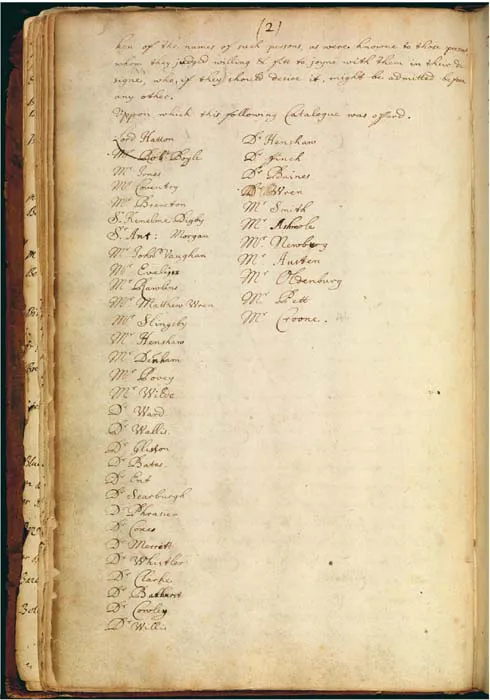 (2)
ken of the names of such persons, as were knowne to those present
whom they judged willing & fitt to joyne with them in their de
signe, who, if they should desire it, might be admitted before
any other.
Vppon which this following Catalogue was offerd.
Lord Hatton
Mr Robt Boyle
Mr Jones
Mr Coventry
Mr Brereton
Sr Kenelme Digby
Sr Ant: Morgan
Mr John Vaughan
Mr Evelyn
Mr Rawlins
Mr Matthew Wren
Mr Slingsby
Mr Henshaw
Mr Denham
Mr Povey
Mr Wilde
Dr Ward
Dr Wallis
Dr Glisson
Dr Bates.
Dr Ent
Dr Scarburgh
Dr Phraiser
Dr Coxes
Dr Merrett
Dr Whistler
Dr Clarke
Dr Bathurst
Dr Cowley
Dr Willis
Dr Henshaw
Dr finch
Dr Baines
Dr Wren
Mr Smith
Mr Ashmole
Mr Newburg
Mr Austen
Mr Oldenburg
Mr Pett
Mr Croone.